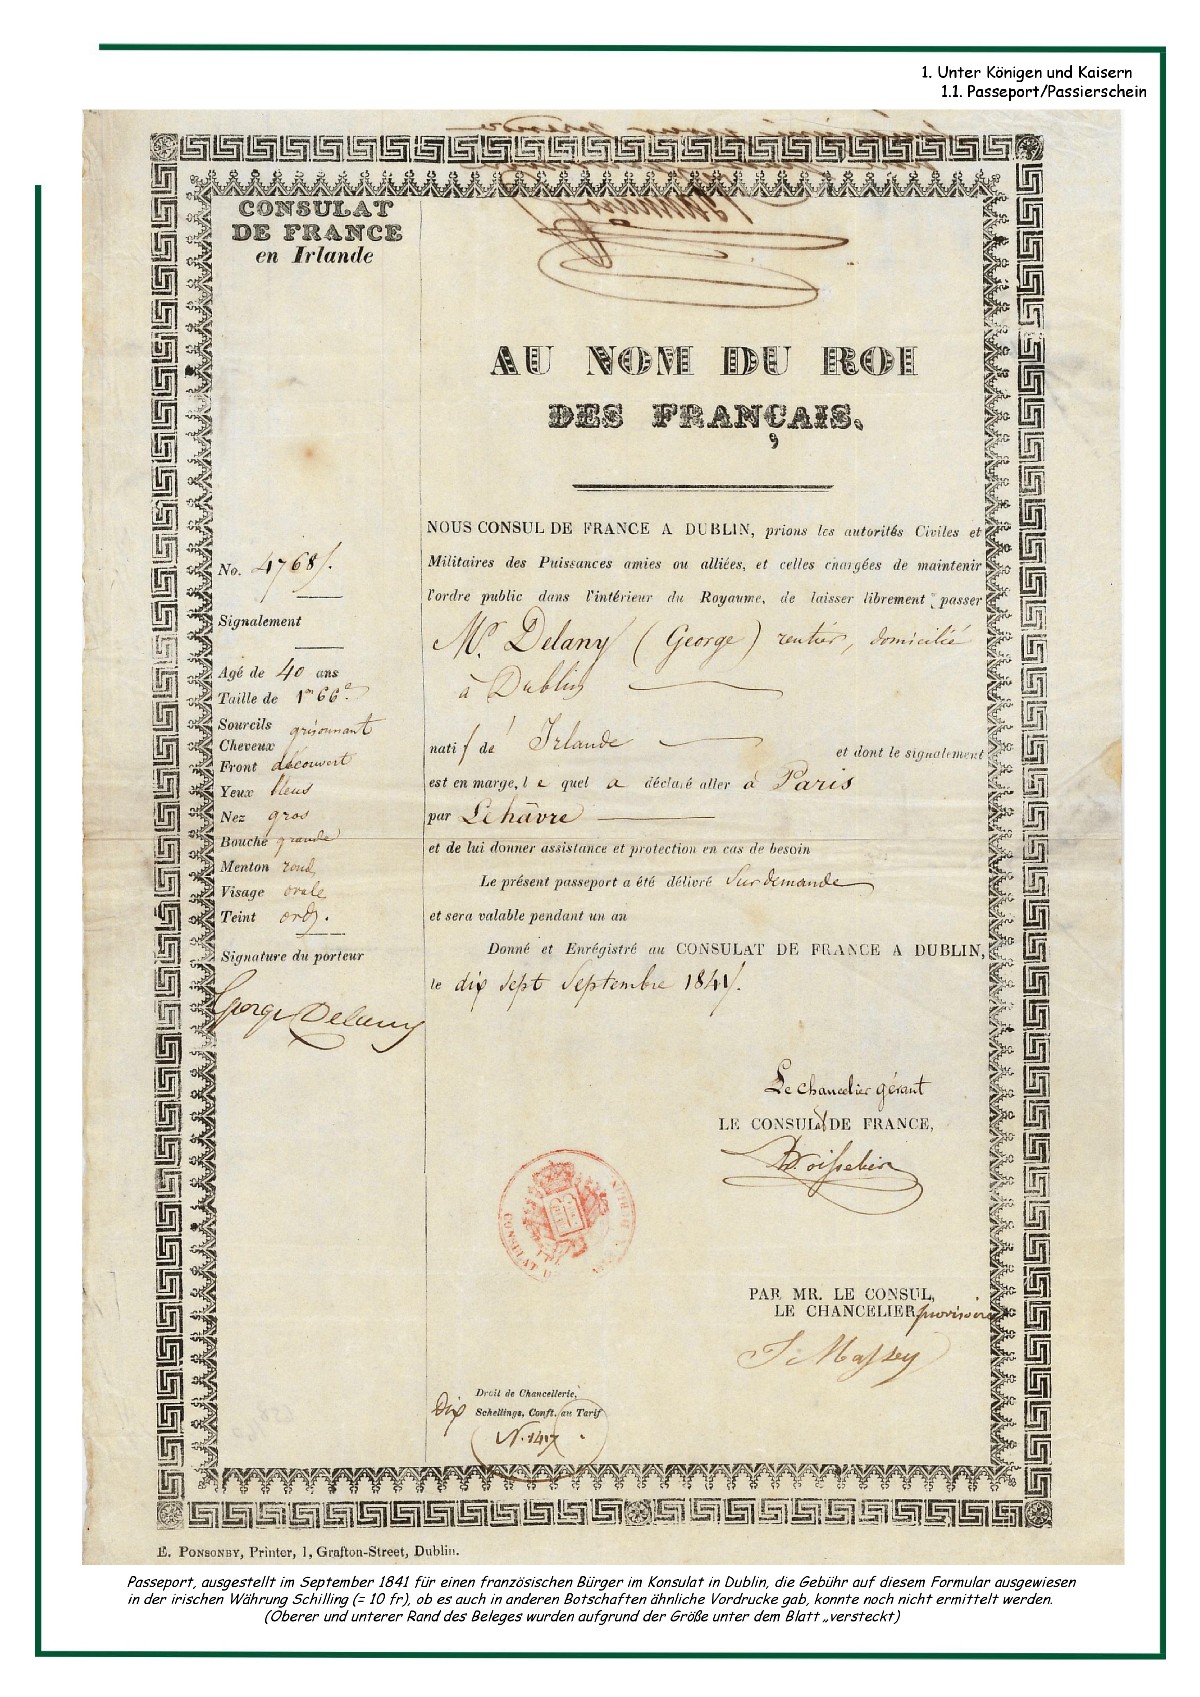 1. Unter Königen und Kaisern
1.1. Passeport/Passierschein
CONSULAT
DE FRANCE
en Irlande
AU NOM DU ROI
DES FRANÇAIS,
No. 4768/.
Signalement
Agé de 40 ans
Taille de 1m 66c
Sourcils
Cheveux grisonnant
Front découvert
Yeux bleus
Nez gros
Bouche grande
Menton rond
Visage ovale
Teint ord.
Signature du porteur
George Delany
NOUS CONSUL DE FRANCE A DUBLIN, prions les autorités Civiles et
Militaires des Puissances amies ou alliées, et celles chargées de maintenir
l'ordre public dans l'intérieur du Royaume, de laisser librement passer
Mr. Delany (George) rentier, domicilié
à Dublin
natif de Irlande et dont le signalement
est en marge, le quel a déclaré aller à Paris
par Lehâvre
et de lui donner assistance et protection en cas de besoin
Le présent passeport a été délivré Sur demande
et sera valable pendant un an
Donné et Enrégistré au CONSULAT DE FRANCE A DUBLIN,
le dix sept Septembre 1841/.
Le chancelier gérant
LE CONSULAT DE FRANCE,
PAR MR. LE CONSUL,
LE CHANCELIER provisoire
J. Massey
CONSULAT
Droit de Chancellerie,
Dix Schellings, Conft. au Tarif
N. 1417
E. PONSONBY, Printer, 1, Grafton-Street, Dublin.
Passeport, ausgestellt im September 1841 für einen französischen Bürger im Konsulat in Dublin, die Gebühr auf diesem Formular ausgewiesen
in der irischen Währung Schilling (= 10 fr), ob es auch in anderen Botschaften ähnliche Vordrucke gab, konnte noch nicht ermittelt werden.
(Oberer und unterer Rand des Beleges wurden aufgrund der Größe unter dem Blatt „versteckt)